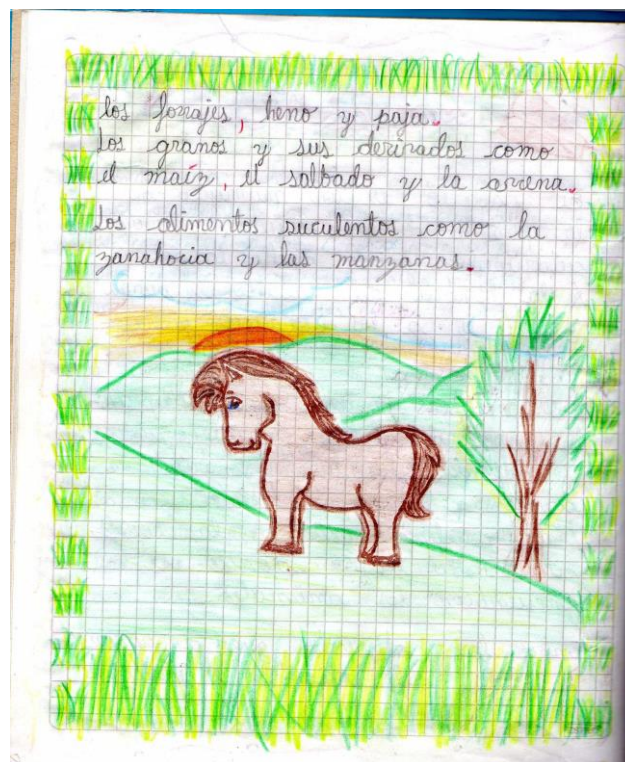 los forrajes, heno y paja.
Los granos y sus derivados como
el maíz, el salbado y la avena.
Los alimentos suculentos como la
zanahoria y las manzanas.